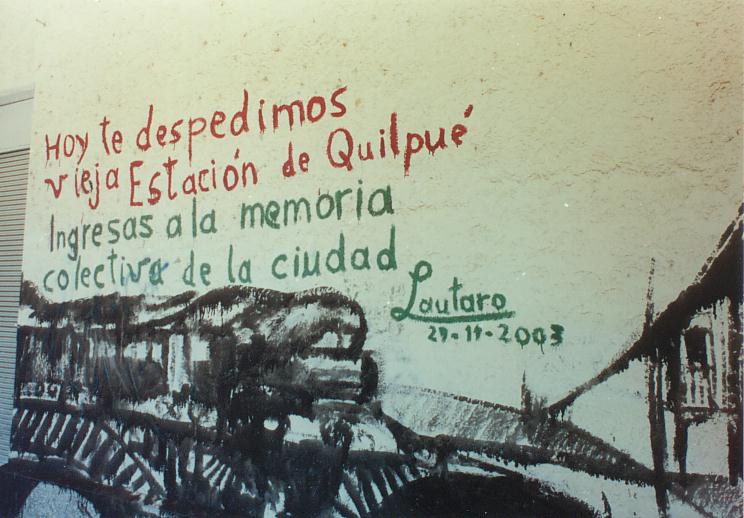 Hoy te despedimos
vieja Estación de Quilpué
Ingresas a la memoria
colectiva de la ciudad
Lautaro
29-11-2003